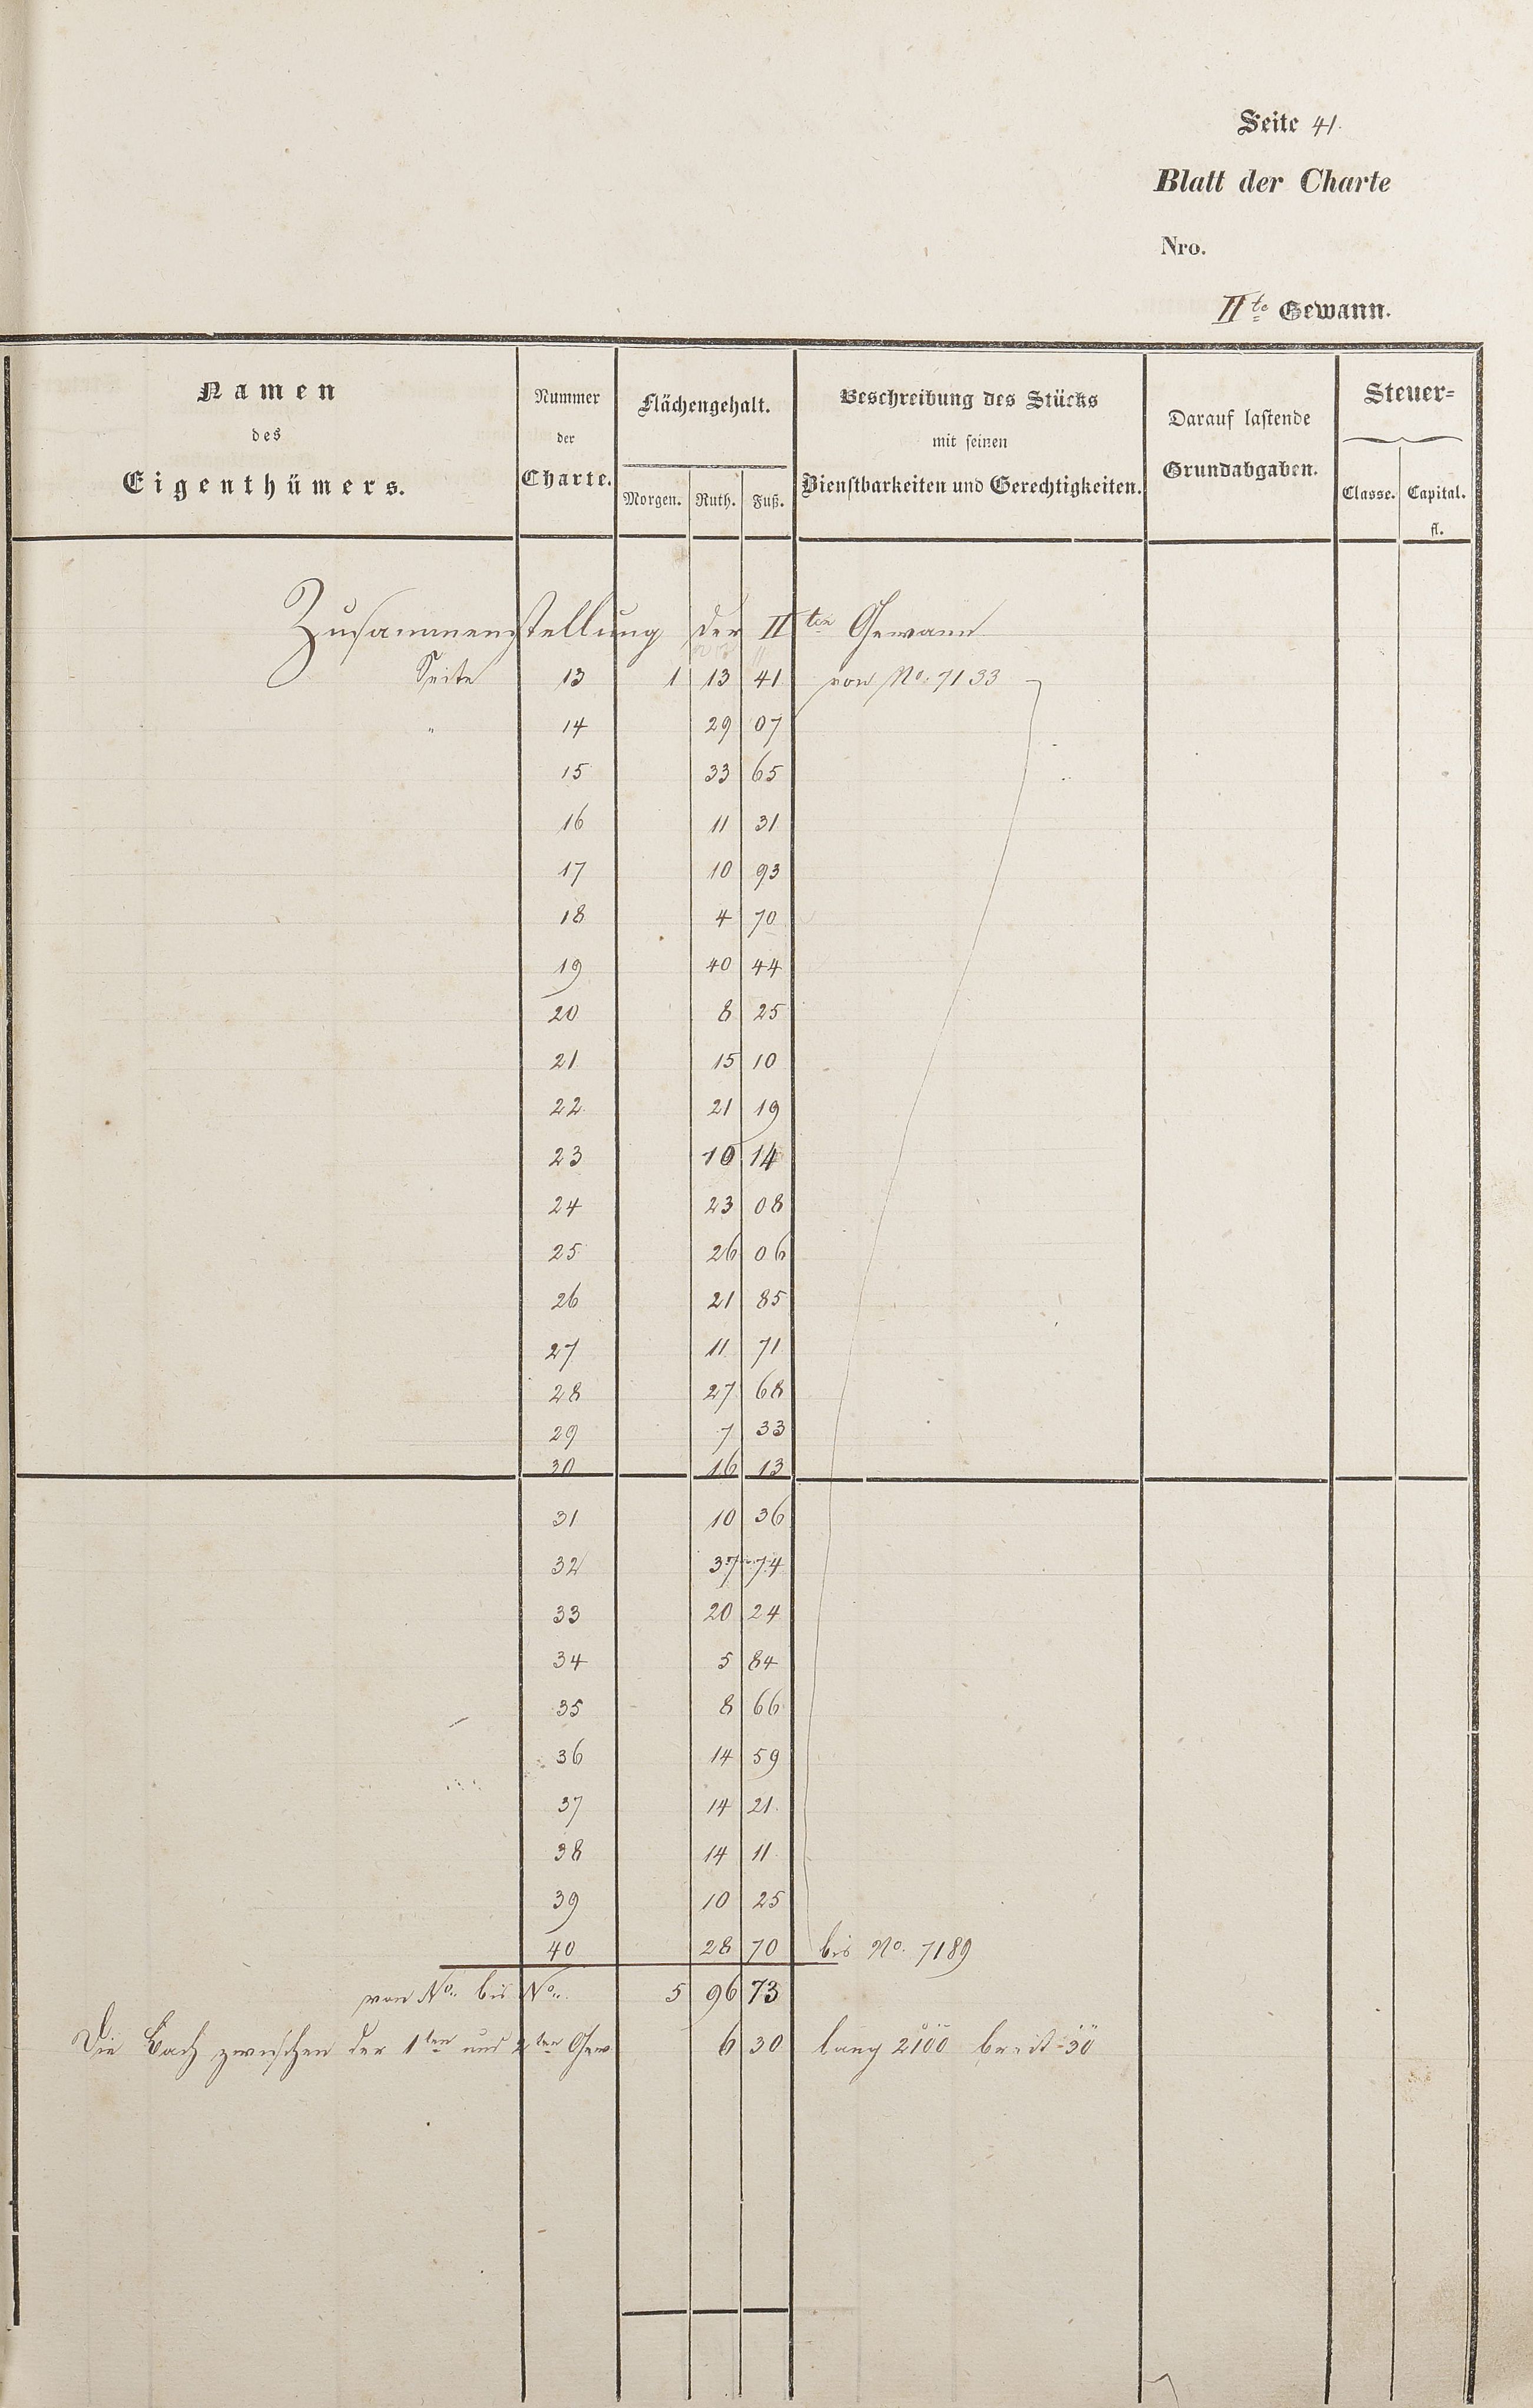 Seite 41.
Blatt der Charte
Nro.
IIte Gewann.
Namen des Eigenthümers.
Nummer der Charte.
Flächengehalt.
Morgen. Ruth. Fuß.
Beschreibung des Stücks mit seinen Dienstbarkeiten und Gerechtigkeiten.
Darauf lastende Grundabgaben.
Steuer=
Classe. Capital.
fl.
Zusammenstellung der IIten Gewann
Seite 13 1 13 41 von No. 7133
" 14 29 07
15 33 65
16 11 31
17 10 93
18 4 70
19 40 44
20 8 25
21 15 10
22 21 19
23 10 14
24 23 08
25 26 06
26 21 85
27 11 71
28 27 68
29 7 33
30 16 13
31 10 36
32 37 74
33 20 24
34 5 84
35 8 66
36 14 59
37 14 21
38 14 11
39 10 25
40 28 70 bis No. 7189
von No. bis No. 5 96 73
Die Bach zwischen der 1ten und 2ten Gew. 6 30 lang 2100 breit 30